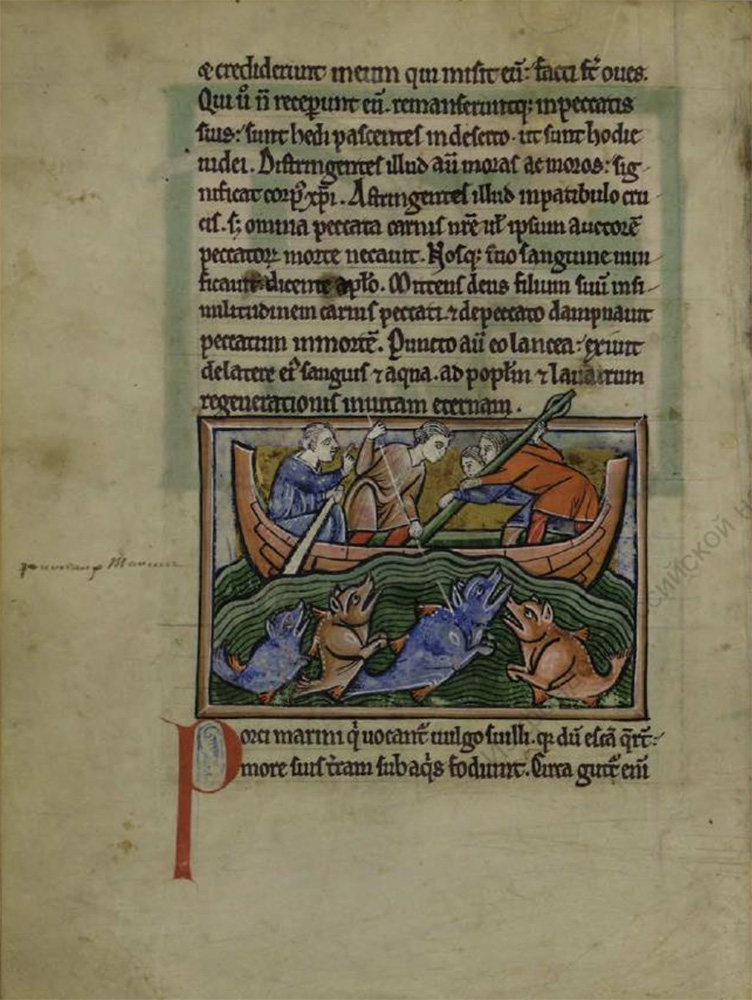 & crediderunt in eum qui misit eū: facti st̄ oues.
Qui ū n̄ receperunt eū. remanseruntq; in peccatis
suis: sunt hedi pascentes in deserto. ut sunt hodie
iudei. Distringentes illud aū moras ac moros: sig
nificat corp᷒ xp̄i. Astringentes illud in patibulo cru
cis. s; omnia peccata carnis nr̄e ul̄ ipsum auctorē
peccatoꝝ morte necauit. Nosq; suo sanguine
dicente aplo. Mittens deus filium suū in si
militudinem carnis peccati. ⁊ de peccato dampnauit
peccatum in mortē. Puncto aū eo lancea: exiuit
de latere ei᷒ sanguis ⁊ aqua. ad poplm̄ ⁊ lauacrum
regenerationis in uitam eternam.
Marinus
Porci marini q̇ uocant᷑ uulgo suilli. q; dū escā q̄rt̄:
more suis t̄ram sub aq̇s fodiunt. Circa gutt᷑ eni